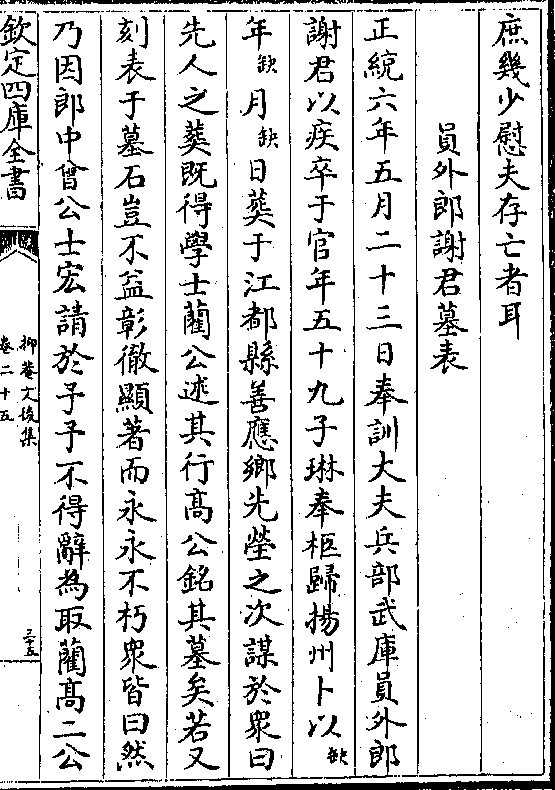 庶幾少慰夫存亡者耳
員外郎謝君墓表
正統六年五月二十三日奉訓大夫兵部武庫員外郎
謝君以疾卒于官年五十九子琳奉柩歸揚州卜以缺
年缺月缺日葬于江都縣善應鄉先塋之次謀於衆曰
先人之葬既得學士藺公述其行高公銘其墓矣若又
刻表于墓石豈不益彰徹顯著而永永不朽衆皆曰然
乃因郎中曾公士宏請於予予不得辭為取藺高二公
欽定四庫全書
抑菴文後集
卷二十五
三十五